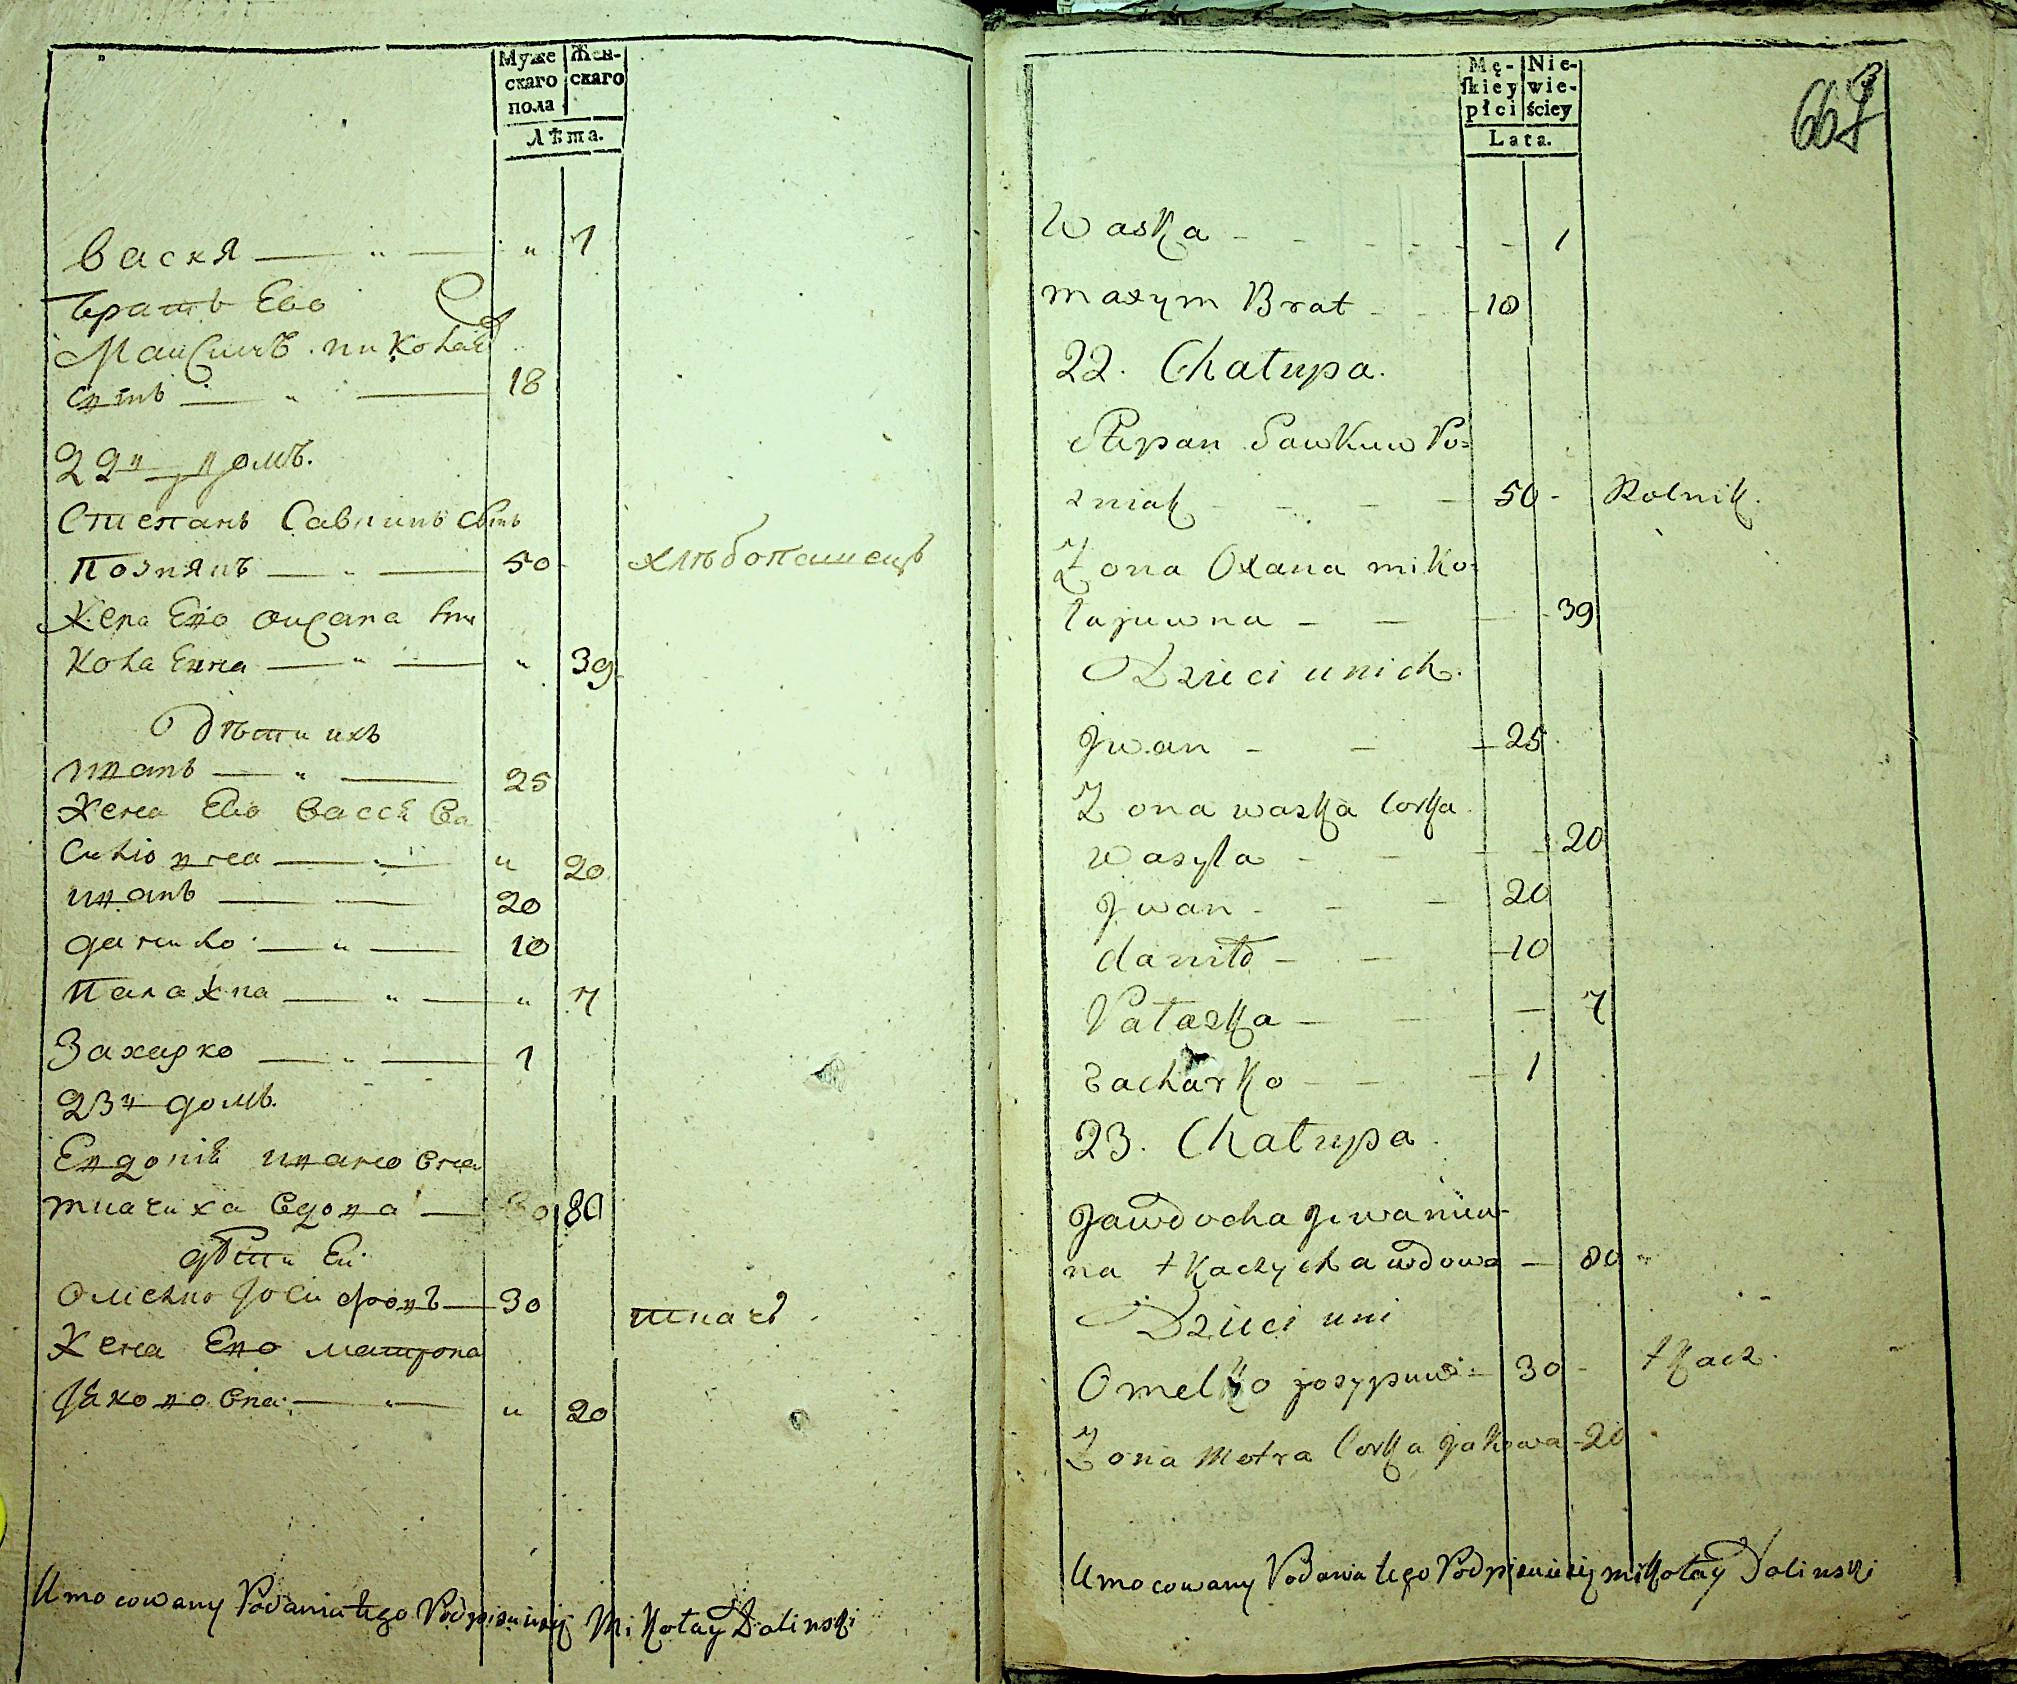 Муже
скаго
пола
Жен-
скаго
Лѣта.
Васка — „ — „ 1
Братъ Ево
Максимъ Николаевъ
сынъ — „ — 18
22й домъ.
Степанъ Савкинъ сынъ
Познякъ — „ — 50 хлѣбопашецъ
Жена Ево Оксана Ни
колаевна — „ — „ 39
Дѣти ихъ
Иванъ — „ — 25
Жена Ево Васса Ва
сильовна — „ — „ 20
Иванъ — — 20
Данило — „ — 10
Палажка — „ — „ 7
Захарко — „ — 1
23й домъ.
Евдокія Иванова
ткачиха вдова — 80
дѣти Еи
Омелко Іосифовъ — 30 ткачь
Жена Ево Матрона
Яковова — „ — „ 20
Umocowany Podania tego Podpisuię Mikołay Dolinski
Mę-
skiey
płci
Nie-
wie-
ściey
Lata.
667
Waska - - - - - - 1
Maxym Brat - - - 18
22. Chałupa.
Stepan Sawkuw Po=
zniak - - - - 50 - Rolnik.
Zona Oxana Miko=
łajuwna - - - - 39
Dzieci u nich.
Jwan - - - 25
Zona Waska Corka
Wasyla - - - - 20
Jwan - - - 20
daniło - - - 10
Pałaszka - - - 7
Zacharko - - - 1
23. Chałupa.
Jawdocha Jwaniuw-
na tkaczycha wdowa - 80
Dzieci u ni
Omelko josypuw - 30 - tkacz.
Zona Motra Corka Jakowa - 20
Umocowany Podania tego Podpisuię Mikołay Dolinski